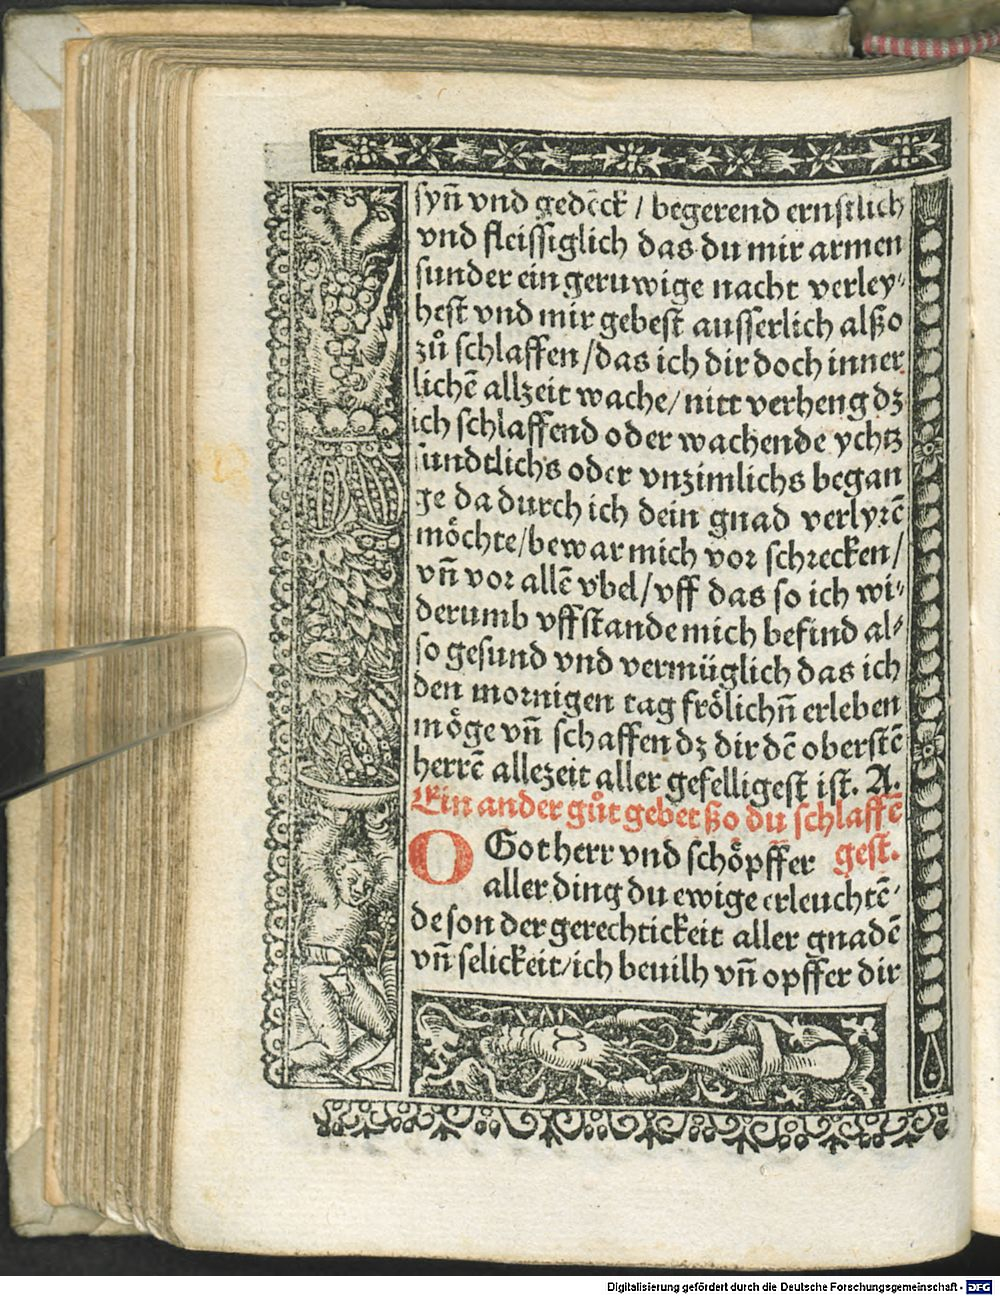 syn̄ vnd gedēck / begerend ernstlich
vnd fleissiglich das du mir armen
sunder ein geruwige nacht verley⸗
hest vnd mir gebest ausserlich alßo
zů schlaffen / das ich dir doch inner
lichē allzeit wache / nitt verheng dz
ich schlaffend oder wachende ychtz
sundtlichs oder vnzimlichs began
ge da durch ich dein gnad verlyrē
möchte / bewar mich vor schrecken /
vn̄ vor allē vbel / vff das so ich wi⸗
derumb vffstande mich befind al⸗
so gesund vnd vermüglich das ich
den mornigen tag frölichn̄ erleben
möge vn̄ schaffen dz dir dē oberstē
herrē allezeit aller gefelligest ist. A.
Ein ander gůt gebet ßo du schlaffē
gest.
O Got herr vnd schöpffer
aller ding du ewige erleuchtē⸗
de son der gerechtickeit aller gnadē
vn̄ selickeit / ich beuilh vn̄ opffer dir
Digitalisierung gefördert durch die Deutsche Forschungsgemeinschaft - DFG